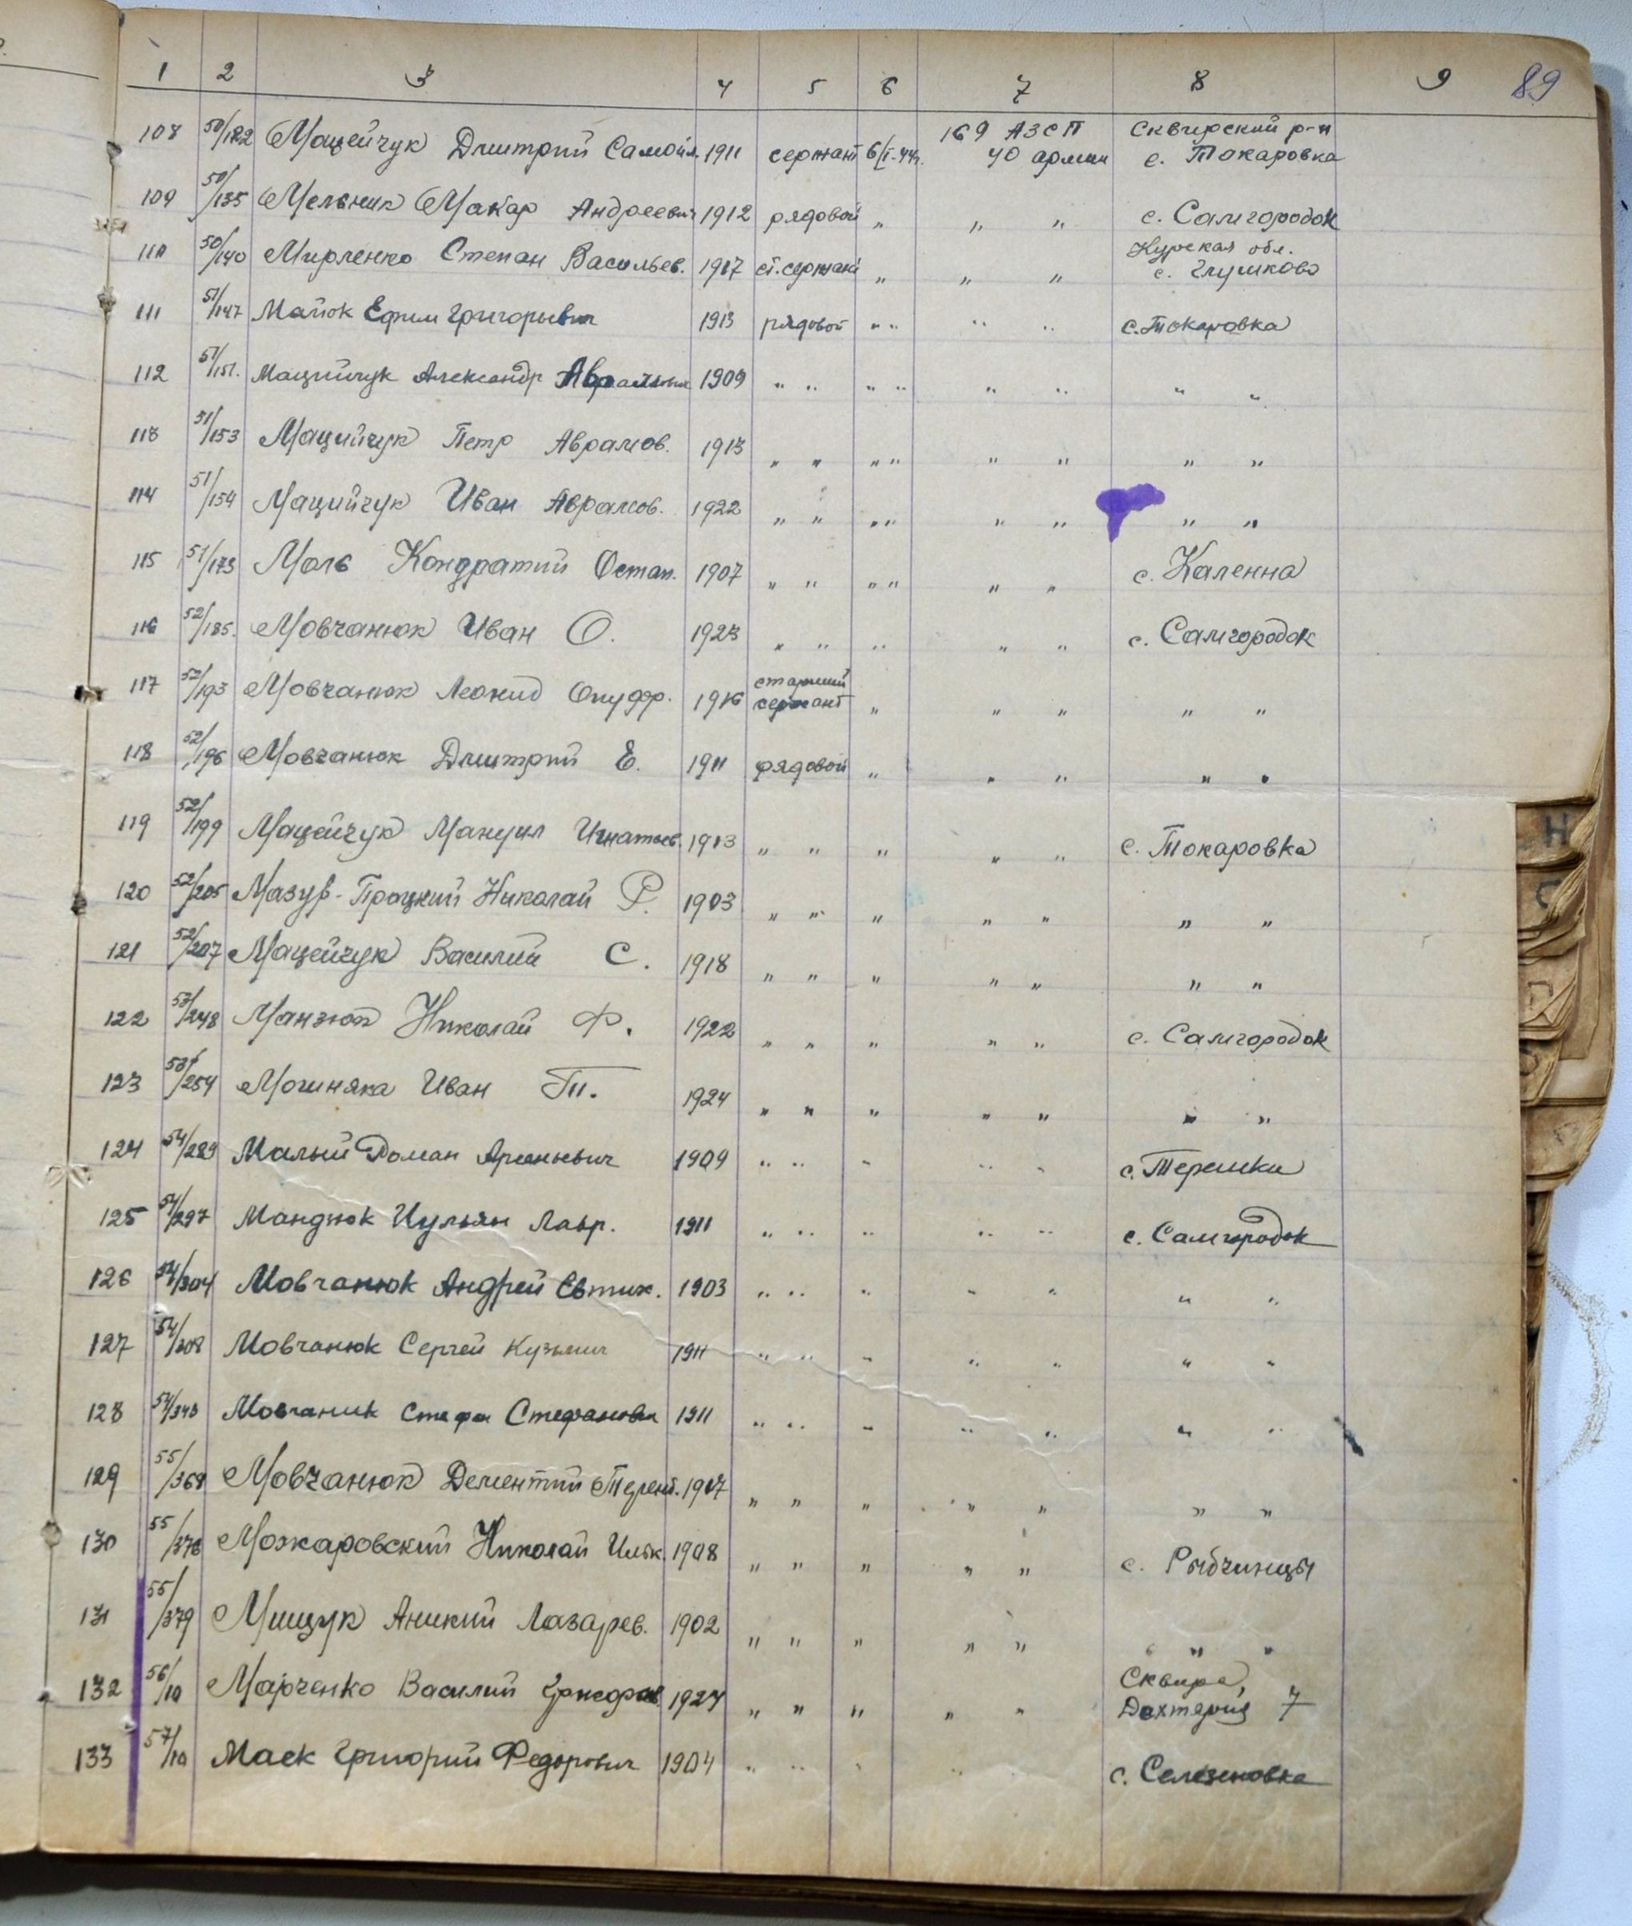 89
1 2 3 4 5 6 7 8 9
108 50/122 Мацейчук Дмитрий Самойл. 1911 сержант 6/I-44г. 169 АЗСП 40 армии Сквирский р-н с. Токаровка
109 50/135 Мельник Макар Андреевич 1912 рядовой " " " с. Самгородок
110 50/140 Мирленко Степан Васильев. 1917 ст. сержант " " " Курская обл. с. Глушково
111 51/147 Маток Ефим Григорьевич 1913 рядовой " " " " с. Токаровка
112 51/151. Мацийчук Александр Аврамович 1909 " " " " " " " "
113 51/153 Мацийчук Петр Аврамов. 1913 " " " " " " " "
114 51/154 Мацийчук Иван Аврамов. 1922 " " " " " " " "
115 51/173 Моль Кондратий Остап. 1907 " " " " " " с. Каленна
116 52/185. Мовчанюк Иван О. 1923 " " " " " с. Самгородок
117 52/193 Мовчанюк Леонид Онуфр. 1916 старший сержант " " " " "
118 52/196 Мовчанюк Дмитрий Е. 1911 рядовой " " " " "
119 52/199 Мацейчук Мануил Игнатьев. 1913 " " " " " с. Токаровка
120 52/205 Мазур-Процкий Николай Р. 1903 " " " " " " "
121 52/207 Мацейчук Василий С. 1918 " " " " " " "
122 53/248 Манзюк Николай Ф. 1922 " " " " " с. Самгородок
123 53/254 Мошняка Иван Т. 1924 " " " " " " "
124 54/289 Малый Роман Арсеньевич 1909 " " " " " с. Терешки
125 54/297 Мандюк Иульян Лавр. 1911 " " " " " с. Самгородок
126 54/304 Мовчанюк Андрей Евтих. 1903 " " " " " " "
127 54/308 Мовчанюк Сергей Кузьмич 1911 " " " " " " "
128 54/343 Мовчанюк Стефан Стефанович 1911 " " " " " " "
129 55/368 Мовчанюк Дементий Терент. 1907 " " " " " " "
130 55/376 Можаровский Николай Ильк. 1908 " " " " " с. Рыбчинцы
131 55/379 Мищук Аникий Лазарев. 1902 " " " " " " "
132 56/10 Марченко Василий 1924 " " " " " Сквира, 7
133 57/10 Маек Григорий Федорович 1904 " " " " " с. Селезеновка